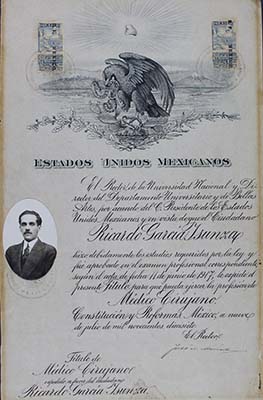 ESTADOS UNIDOS MEXICANOS.
El Rector de la Universidad Nacional y Di-
rector del Departamento Universitario y de Bellas
Artes, por acuerdo del C. Presidente de los Estados
Unidos Mexicanos y en vista de que el Ciudadano
Ricardo García Isunza
hizo debidamente los estudios requeridos por la ley y
fue aprobado en el examen profesional correspondiente
según el acta de fecha 11 de junio de 1917, le expide el
presente Título para que pueda ejercer la profesión de
Médico Cirujano.
Constitución y Reformas. México, a nueve
de julio de mil novecientos diecisiete
El Rector
Título de
Médico Cirujano
expedido a favor del Ciudadano
Ricardo García Isunza.